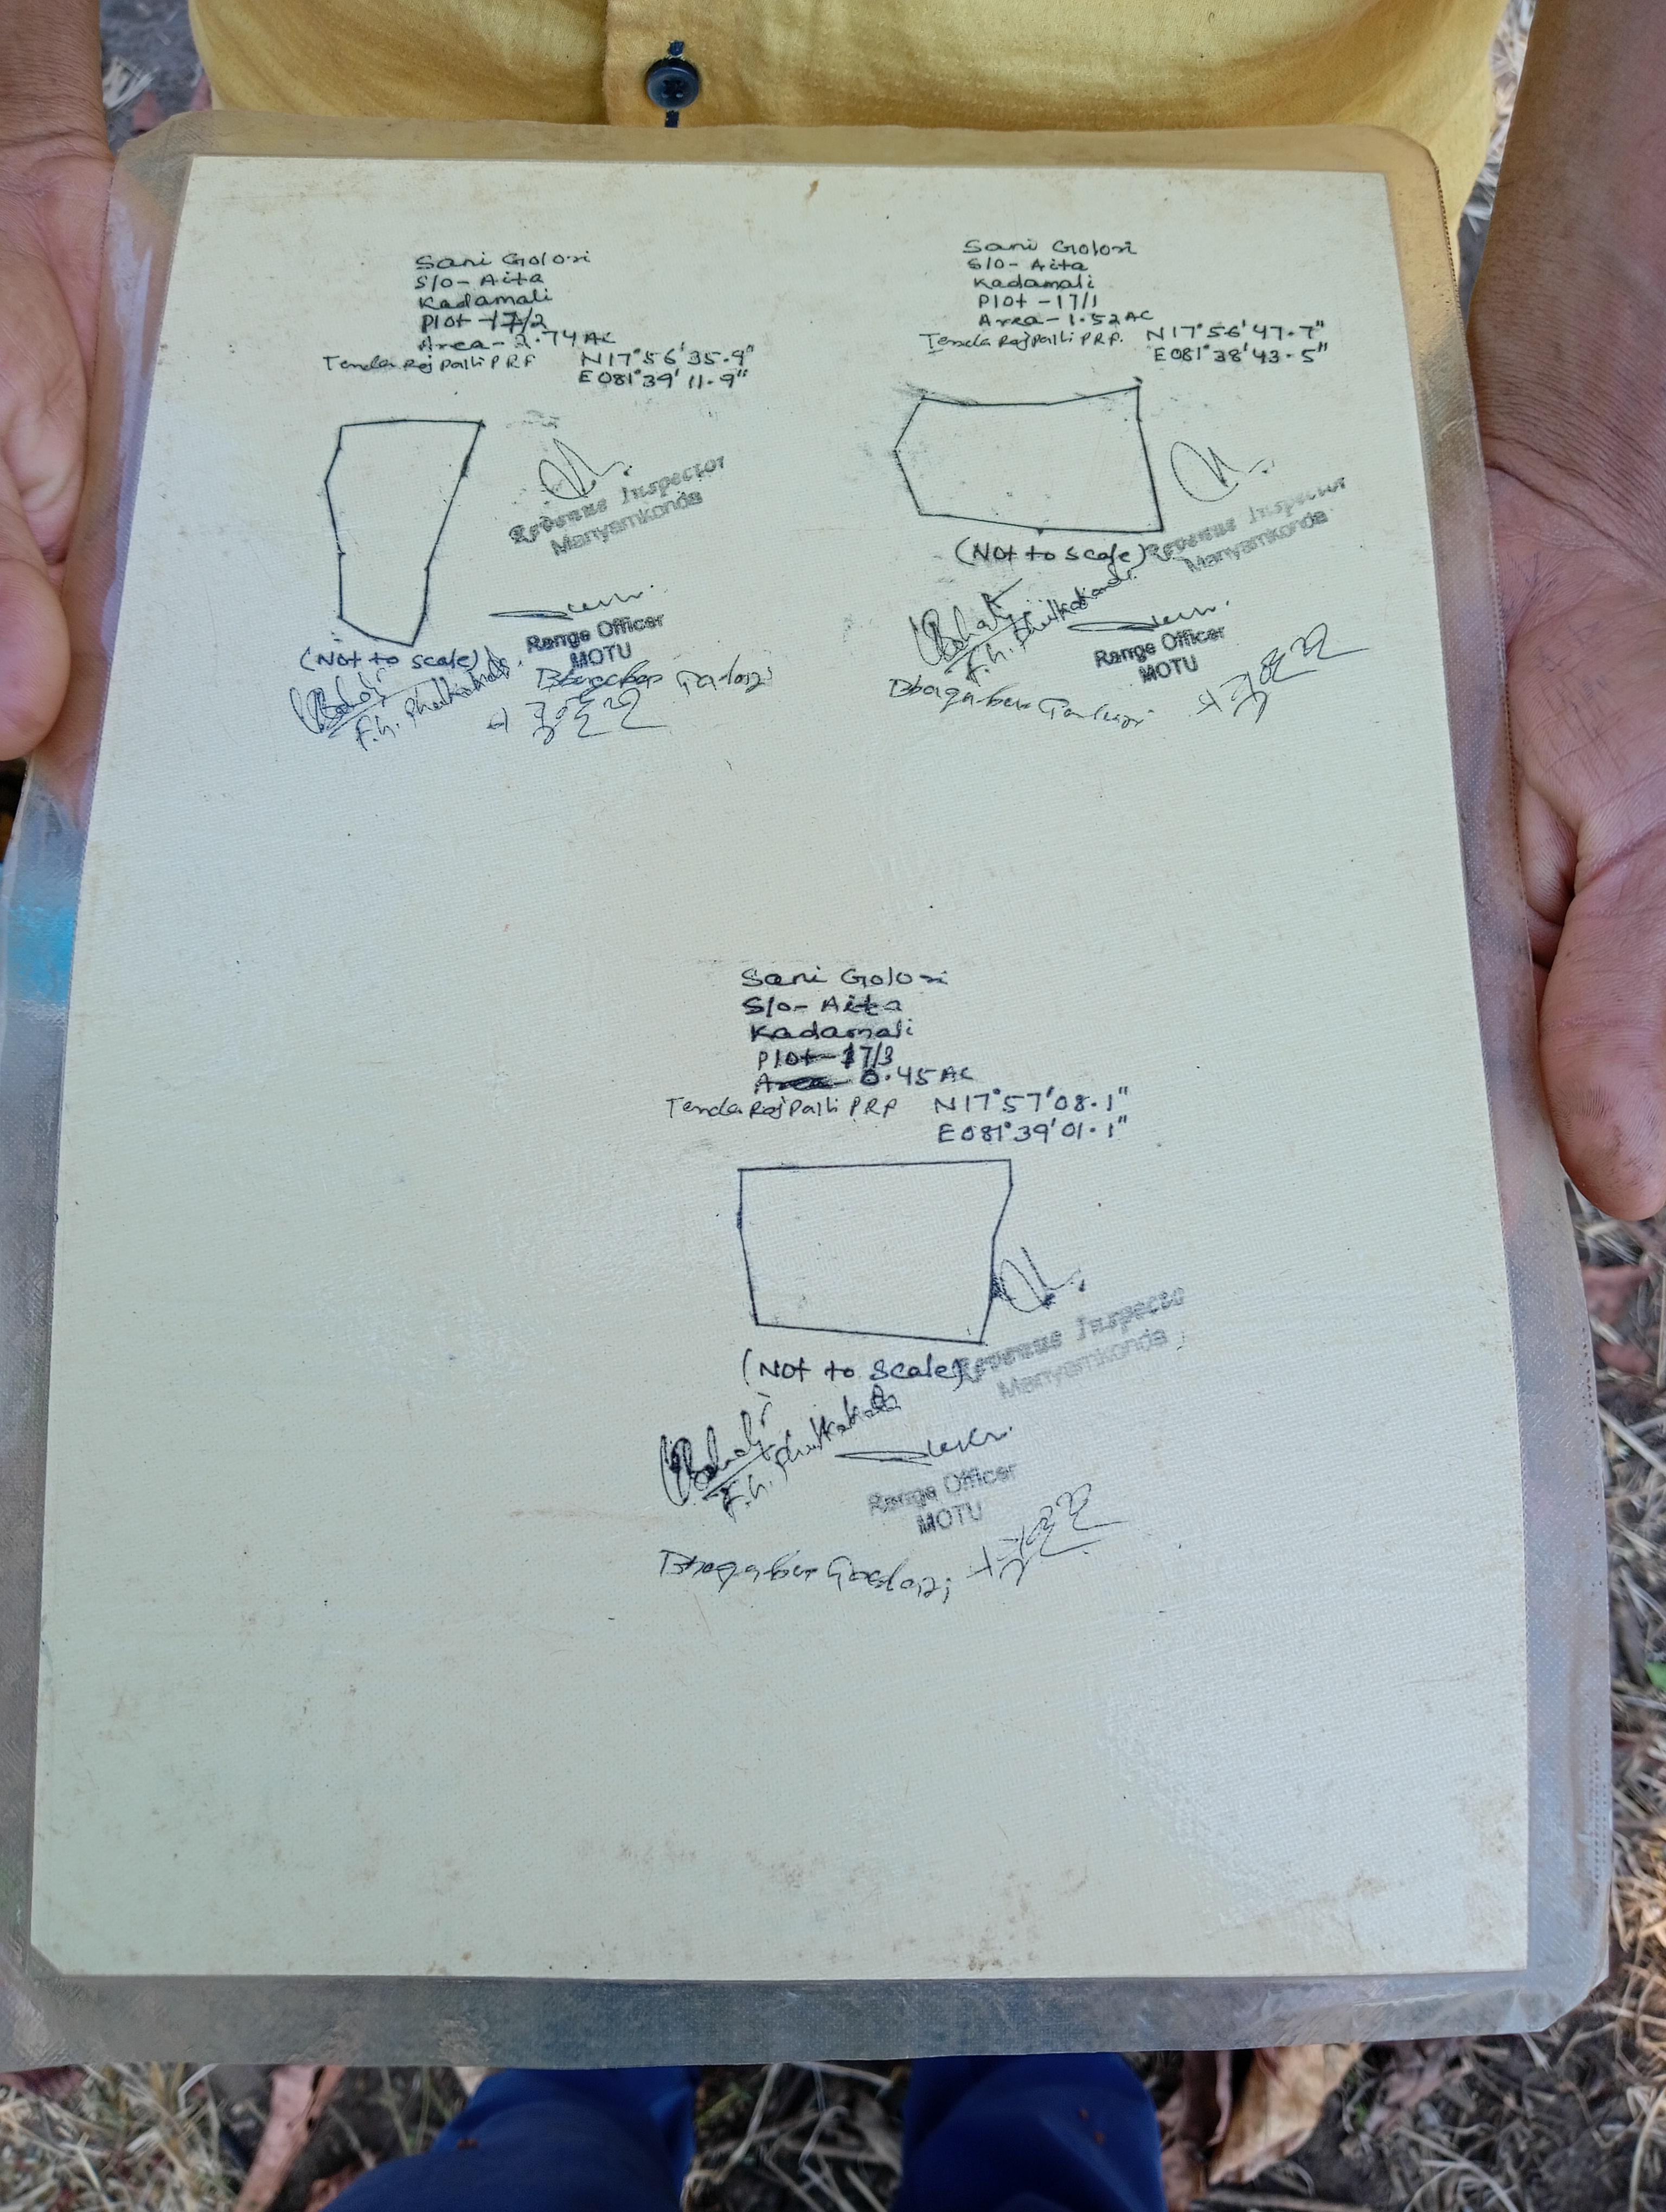 Sani Golori
S/o- Aita
Kadamali
Plot - 17/2
Area - 2.74 AC
Tenda Rajpalli PRF
N17°56'35.9"
E081°39'11.9"
Revenue Inspector
Manyamkonda
Range Officer
MOTU
(Not to scale)
Sani Golori
S/o- Aita
Kadamali
Plot - 17/1
Area - 1.52 AC
Tenda Rajpalli PRF.
N17°56'47.7"
E081°38'43.5"
Revenue Inspector
Manyamkonda
(Not to scale)
Range Officer
MOTU
Sani Golori
S/o- Aita
Kadamali
Plot - 17/3
Area - 0.45 AC
Tenda Rajpalli PRF
N17°57'08.1"
E081°39'01.1"
Revenue Inspector
Manyamkonda
(Not to scale)
Range Officer
MOTU